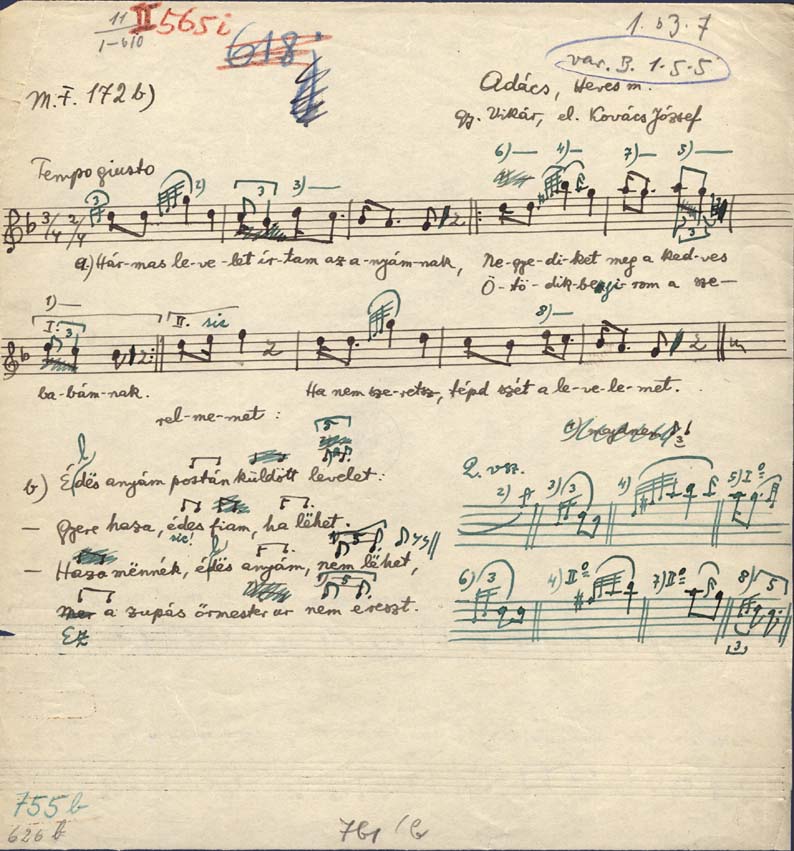 11 II 565 i
1-610
618 i
1. b3. 7
var. B. 1-5-5
M.F. 172 b)
Adács, Heves m.
gy. Vikár, el. Kovács József
Tempo giusto
6) 4) 7) 5)
3 2) 3 3)
3/4 2/4
3
a.) Hár-mas le-ve-let ír-tam az a-nyám-nak, Ne-gye-di-ket meg a ked-ves
Ö-tö-dik-be gyi-rom a sze-
1)
I. 3 II. sic 8)
ba-bám-nak. Ha nem sze-retsz, tépd szét a le-ve-le-met.
rel-me-met:
3
5
b) Édës anyám postán küldött levelet:
2. vsz.
2) 3) 3 4) 5) I°
— Gyere haza, édes fiam, ha lëhet.
sic!
— Haza mënnék, édës anyám, nem lëhet,
5
6) 3 4) II° 7) II° 8) 5
mer a zupás őrmester úr nem ereszt.
Ez
3
755 b
626 b
761/b